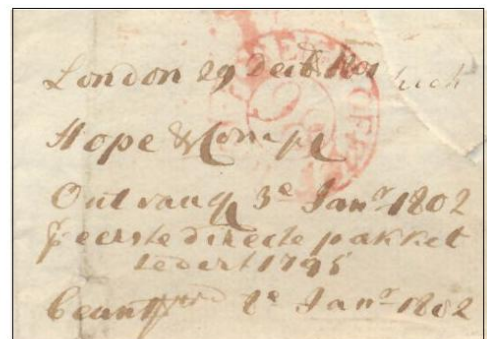 London 29 Decbr 1801
Hope & Compe
Ontvang 3e Janr 1802
p eerste directe pakket
zedert 1795
beantwrd 8e Janr 1802